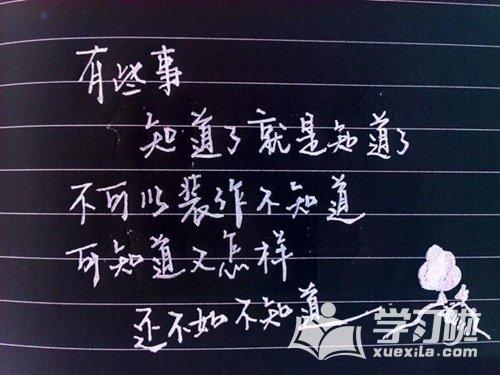 有些事
知道了就是知道了
不可以装作不知道
可知道又怎样
还不如不知道
学习啦
xuexila.com